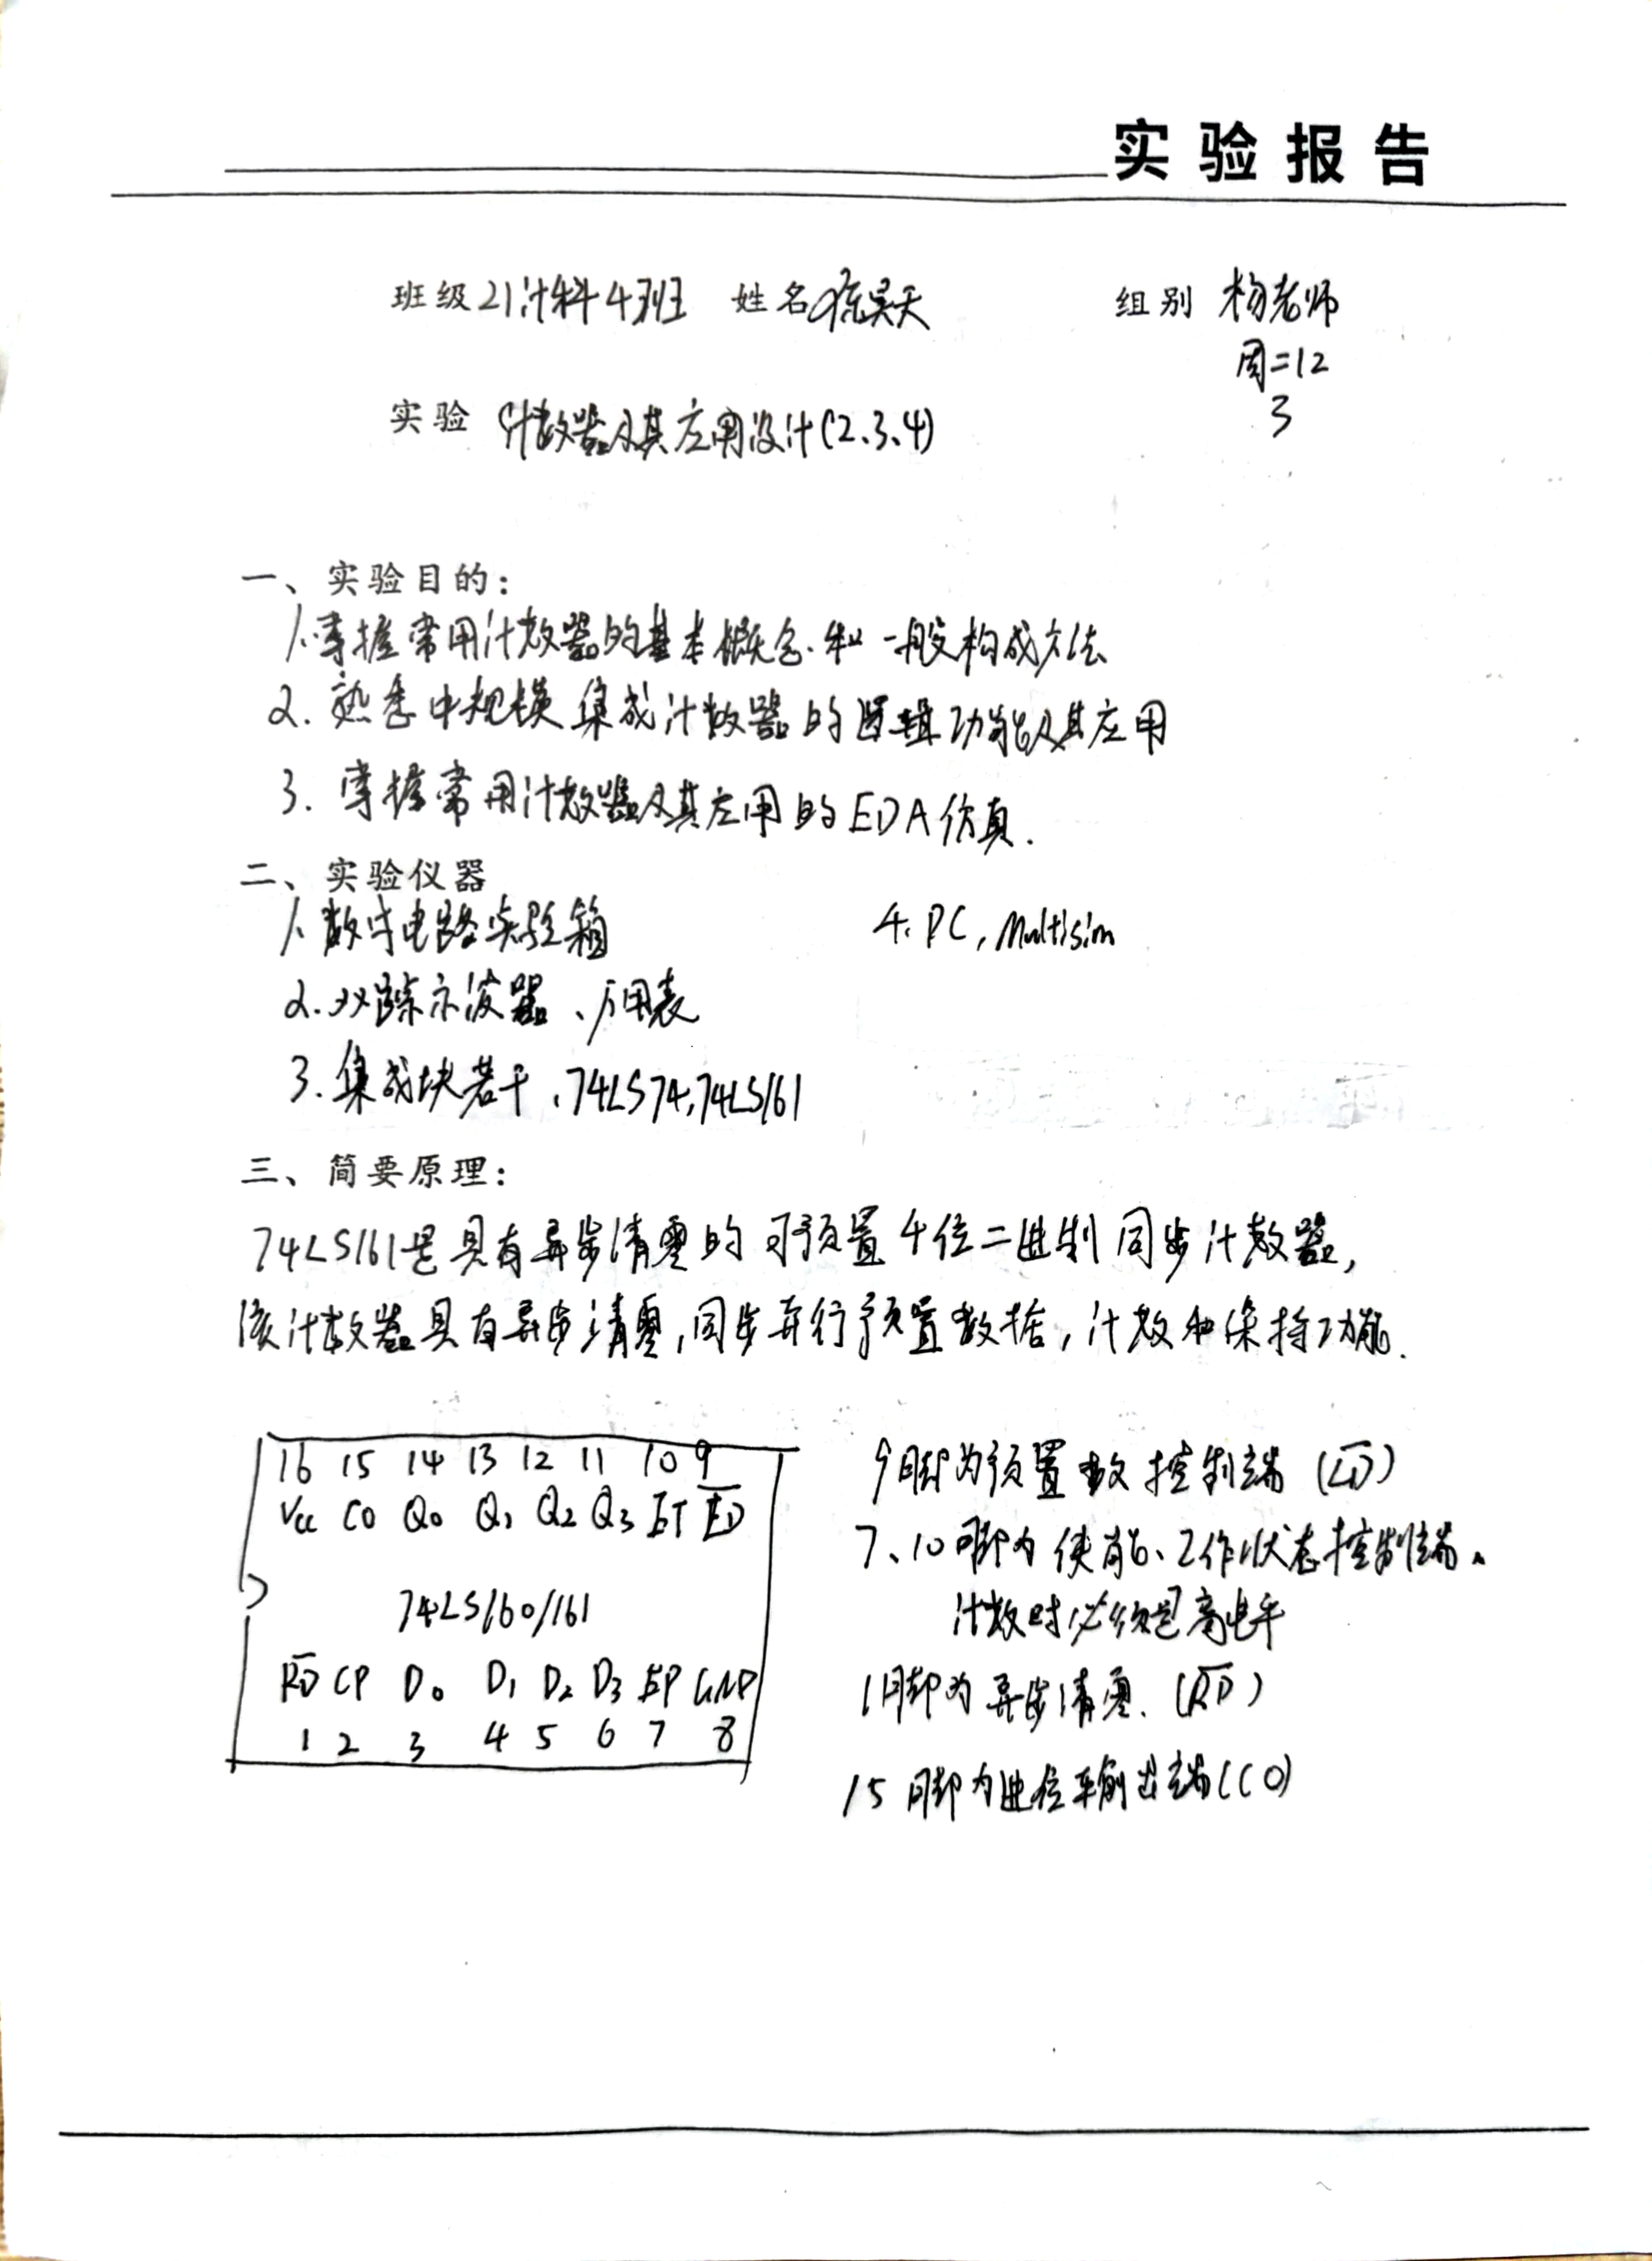 实验报告
班级 21计科4班 姓名 昊天 组别 杨老师
周二12
3
实验 计数器及其应用设计(2、3、4)
一、实验目的:
1.掌握常用计数器的基本概念和一般构成方法
2. 熟悉中规模集成计数器的逻辑功能及其应用
3. 掌握常用计数器及其应用的EDA仿真.
二、实验仪器
1.数字电路实验箱 4. PC, Multisim
2.双踪示波器、万用表
3.集成块若干、74LS74,74LS161
三、简要原理:
74LS161是具有异步清零的可预置4位二进制同步计数器,
该计数器具有异步清零,同步并行预置数据,计数和保持功能.
16 15 14 13 12 11 10 9
Vcc CO Q₀ Q₁ Q₂ Q₃ ET L̅D̅
74LS160/161
R̅D̅ CP D₀ D₁ D₂ D₃ EP GND
1 2 3 4 5 6 7 8
9脚为预置数控制端 (L̅D̅)
7、10脚为使能、工作状态控制端。
计数时必须是高电平
1脚为异步清零. (R̅D̅)
15脚为进位输出端(CO)